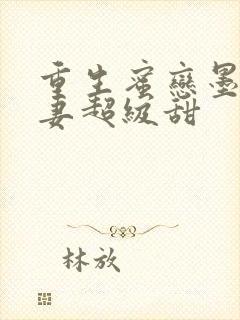 重生蜜恋墨
妻超级甜
林放